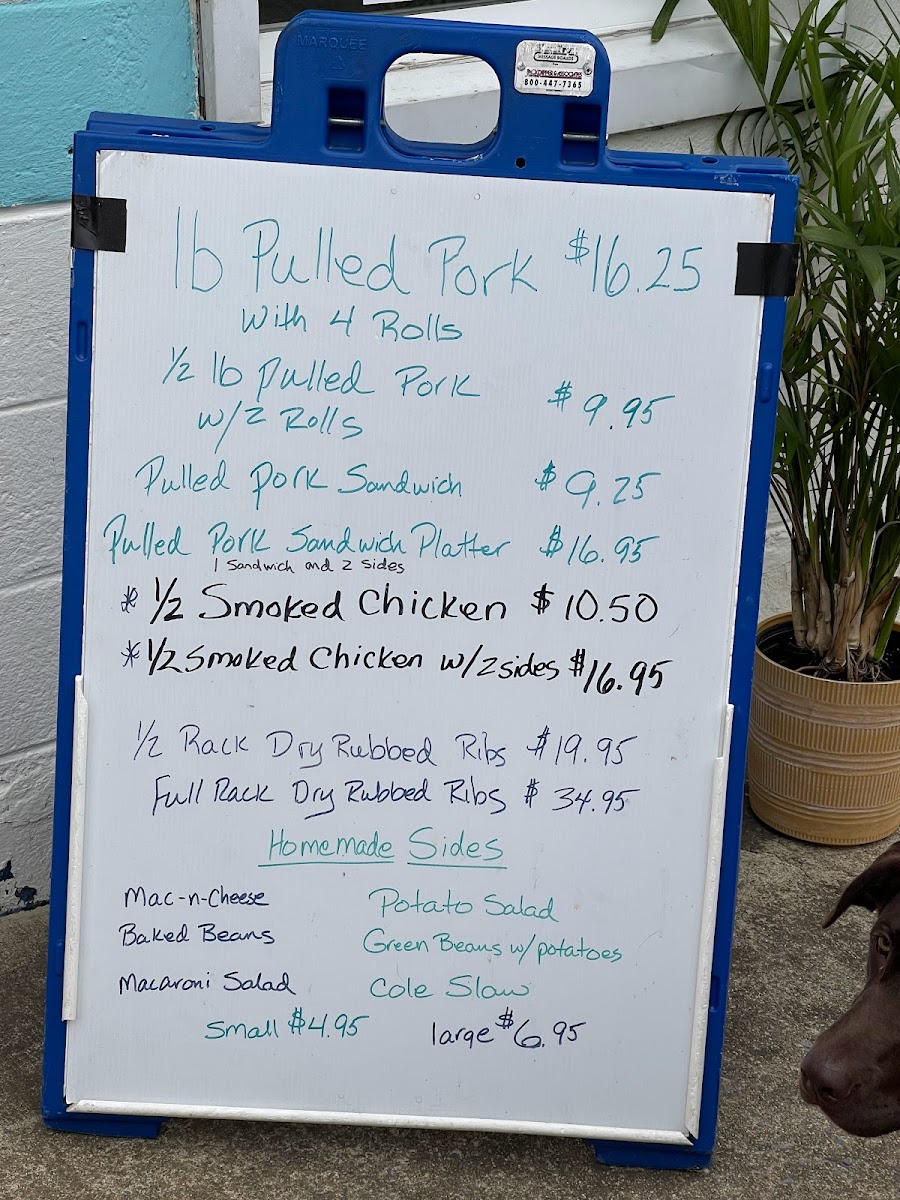 MARQUEE
MESSAGE BOARDS
800-447-7365
1lb Pulled Pork $16.25
with 4 Rolls
1/2 lb Pulled Pork
w/2 Rolls $9.95
Pulled pork Sandwich $9.25
Pulled Pork Sandwich Platter $16.95
1 Sandwich and 2 Sides
* 1/2 Smoked Chicken $10.50
* 1/2 Smoked Chicken w/2 sides $16.95
1/2 Rack Dry Rubbed Ribs $19.95
Full Rack Dry Rubbed Ribs $34.95
Homemade Sides
Mac-n-Cheese Potato Salad
Baked Beans Green Beans w/potatoes
Macaroni Salad Cole Slaw
Small $4.95 large $6.95